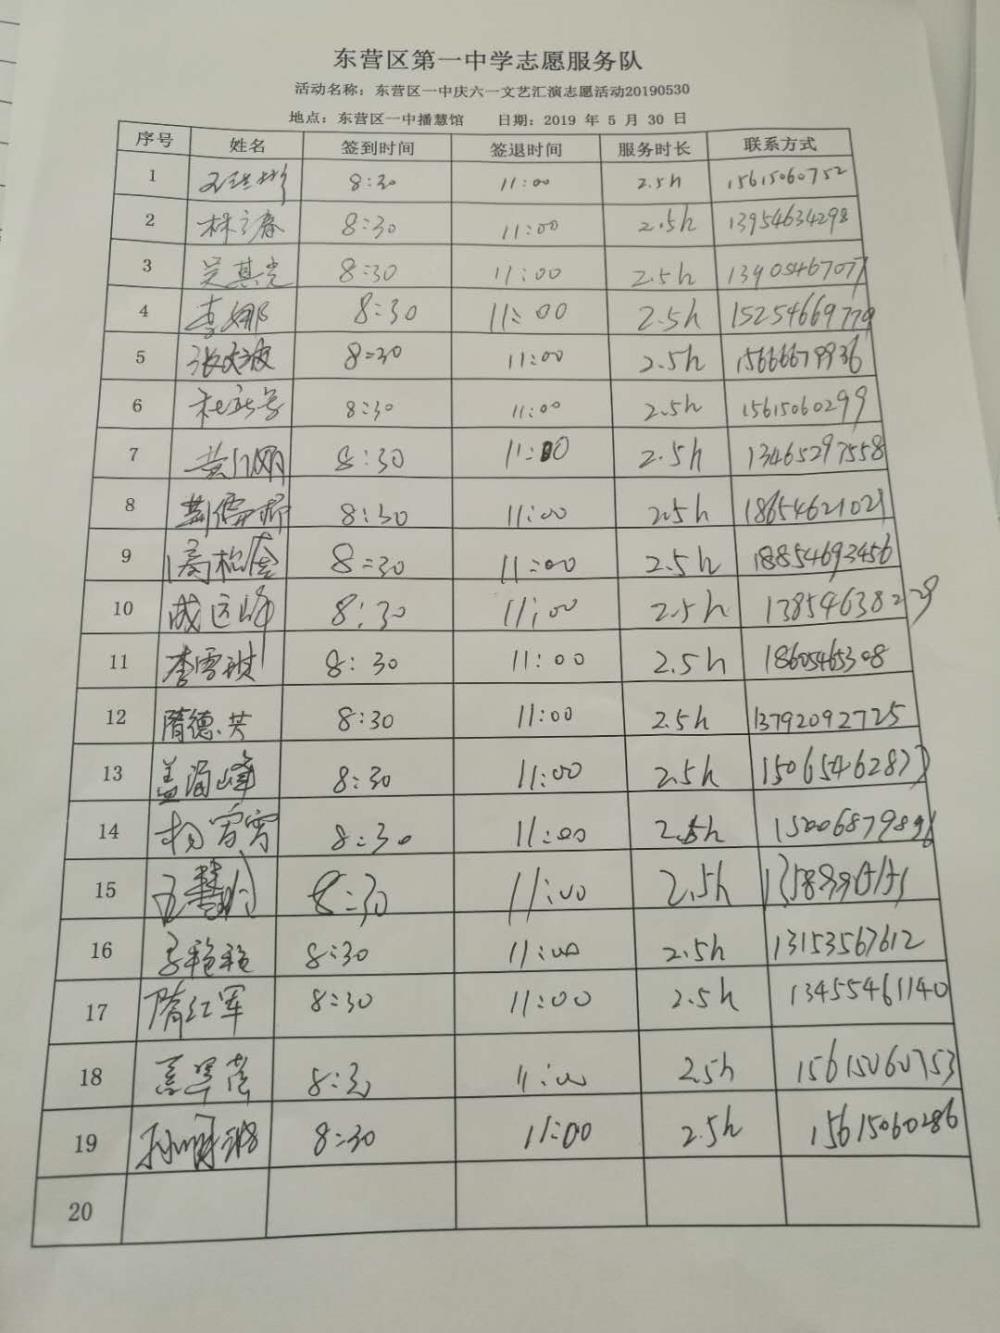 东营区第一中学志愿服务队
活动名称：东营区一中庆六一文艺汇演志愿活动20190530
地点：东营区一中播慧馆 日期：2019 年 5 月 30 日
序号 姓名 签到时间 签退时间 服务时长 联系方式
1 8:30 11:00 2.5h 15615060752
2 林立春 8:30 11:00 2.5h 13954634298
3 吴其光 8:30 11:00 2.5h 13905467077
4 李娜 8:30 11:00 2.5h 15254669779
5 张文波 8:30 11:00 2.5h 15666679936
6 8:30 11:00 2.5h 15615060299
7 8:30 11:00 2.5h 13465297558
8 8:30 11:00 2.5h 18654621021
9 8:30 11:00 2.5h 18854693456
10 成运峰 8:30 11:00 2.5h 13854638229
11 李雪琪 8:30 11:00 2.5h 18605465308
12 隋德芸 8:30 11:00 2.5h 13792092725
13 盖海峰 8:30 11:00 2.5h 15065462877
14 杨雪霄 8:30 11:00 2.5h 15006879896
15 8:30 11:00 2.5h
16 李艳艳 8:30 11:00 2.5h 13153567612
17 隋红军 8:30 11:00 2.5h 13455461140
18 8:30 11:00 2.5h 15615060753
19 8:30 11:00 2.5h 15615060286
20